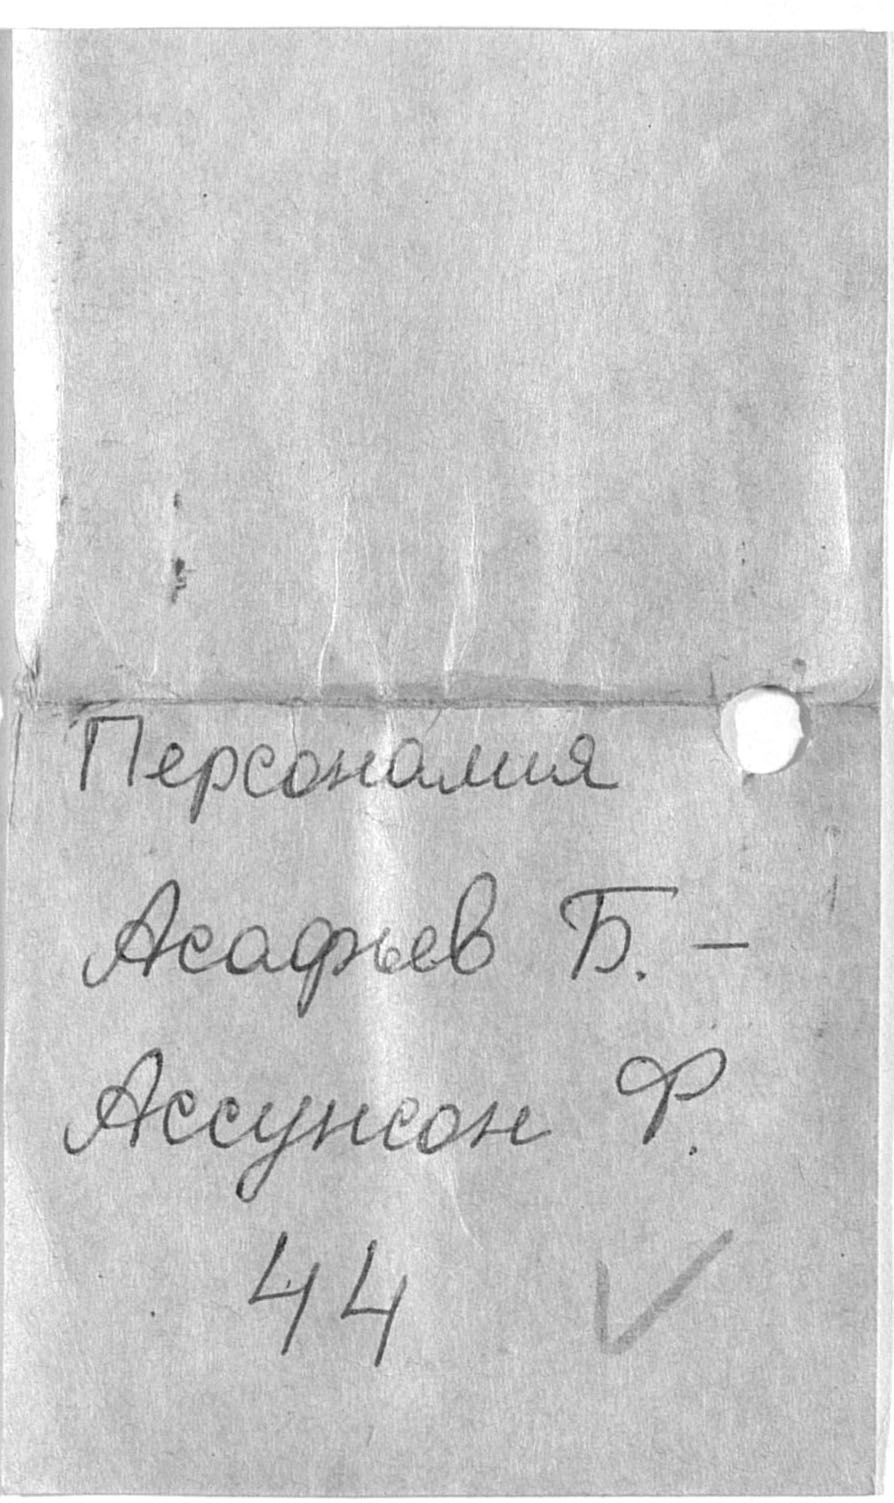 Персоналия
Асафьев Б. –
Ассунсон Ф.
44